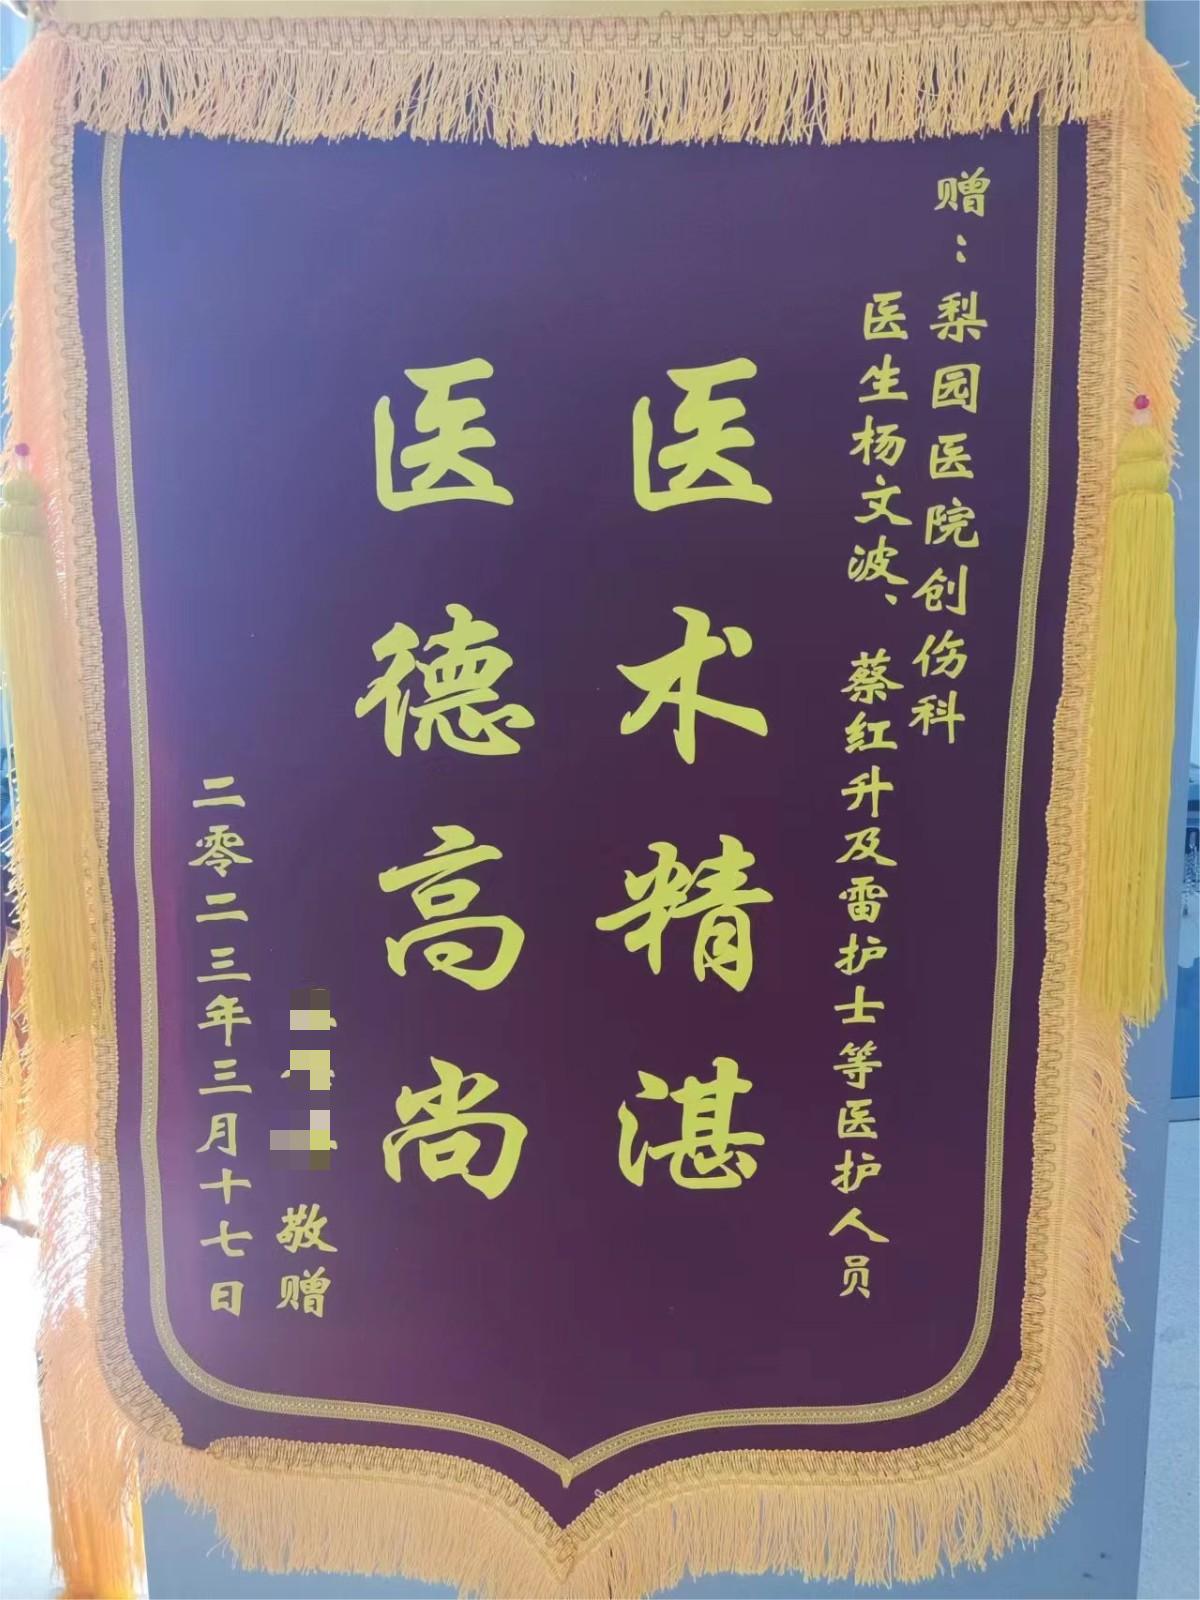 赠：梨园医院创伤科
医生杨文波、蔡红升及雷护士等医护人员
医术精湛
医德高尚
敬赠
二零二三年三月十七日